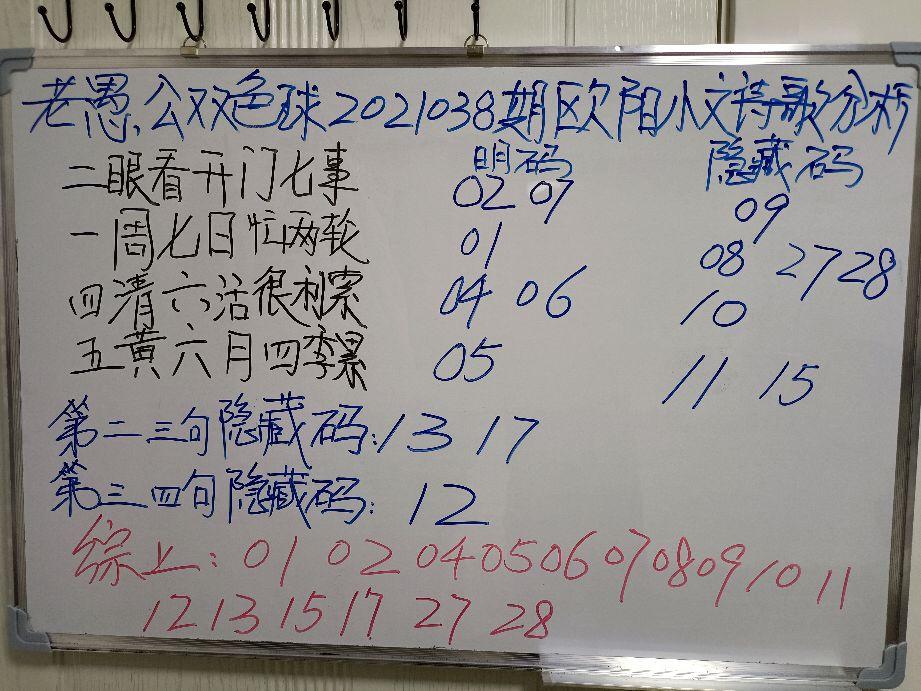 老愚公双色球2021038期区欧阳小文诗歌分析
明码 隐藏码
二眼看开门七事 02 07 09
一周七日忙两轮 01 08 27 28
四清六活很利索 04 06 10
五黄六月四季累 05 11 15
第二三句隐藏码:13 17
第三四句隐藏码:12
综上:01 02 04 05 06 07 08 09 10 11
12 13 15 17 27 28